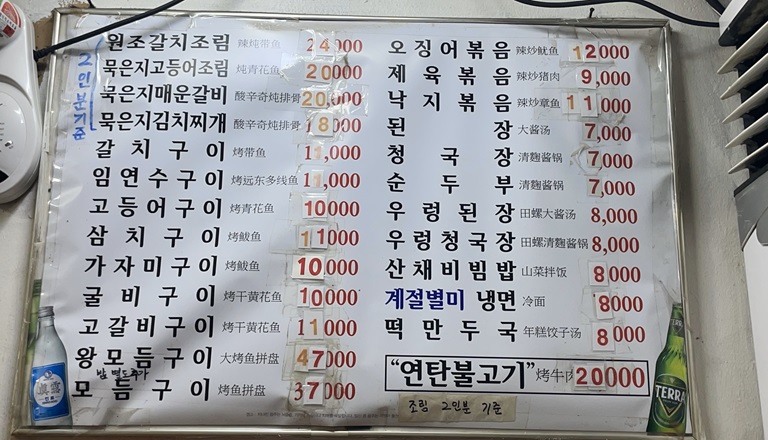 2인분기준
원조갈치조림 辣炖带鱼 24000
묵은지고등어조림 炖青花鱼 20000
묵은지매운갈비 酸辛奇炖排骨 20,000
묵은지김치찌개 酸辛奇炖排骨 18000
갈치구이 烤带鱼 11,000
임연수구이 烤远东多线鱼 11,000
고등어구이 烤青花鱼 10000
삼치구이 烤鲅鱼 11000
가자미구이 烤鲅鱼 10,000
굴비구이 烤干黄花鱼 10000
고갈비구이 烤干黄花鱼 11000
왕모듬구이 大烤鱼拼盘 47000
밥 별도추가
모듬구이 烤鱼拼盘 37000
오징어볶음 辣炒鱿鱼 12000
제육볶음 辣炒猪肉 9,000
낙지볶음 辣炒章鱼 11000
된장 大酱汤 7,000
청국장 清麴酱锅 7,000
순두부 清麴酱锅 7,000
우렁된장 田螺大酱汤 8,000
우렁청국장 田螺清麴酱锅 8,000
산채비빔밥 山菜拌饭 8000
계절별미 냉면 冷面 8000
떡만두국 年糕饺子汤 8000
"연탄불고기" 烤牛肉 20000
조림 2인분 기준
TERRA